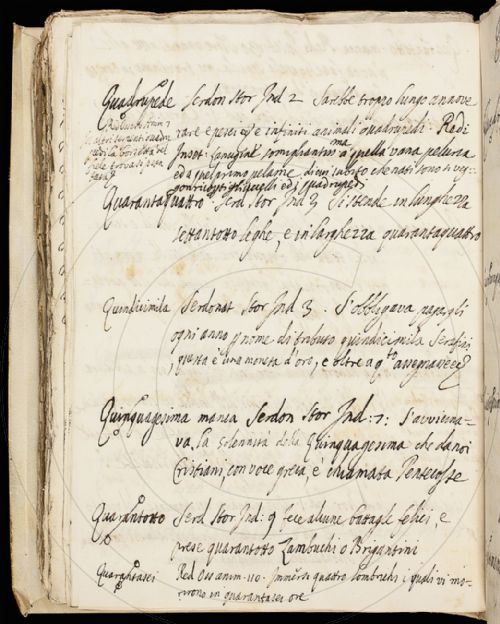 Quadrupede Serdon Stor Ind 2 Sarebbe troppo lungo annove
rare e pesci e infiniti animali quadrupedi. Redi
Inset: lanugine somigliantissima a quella vana peluria
ed a quel primo pelame, di cui subito che nati sono si veg-
gon ricoperti gli uccelli ed i quadrupedi
Quarantaquattro Serd Stor Ind 3 Si stende in lunghezza
settantotto leghe, e in larghezza quarantaquattro
Quindicimila Serdonat Stor Ind 3. S'obbligava pagargli
ogni anno p nome di tributo quindicimila Serafini
questa è una moneta d'oro, e oltre a q.to
Quinquagesima manca Serdon Stor Ind: 7: s'avvicina-
va la solennità della Quinquagesima che da noi
Cristiani, con voce greca, è chiamata Pentecoste
Quarantotto Serd Stor Ind: 9 fece alcune battagle felici, e
prese quarantotto Zambuchi o Brigantini
Quarantasei Red Oss anim. 110. Immersi quattro lombrichi i quali vi mo-
rirono in quarantasei ore